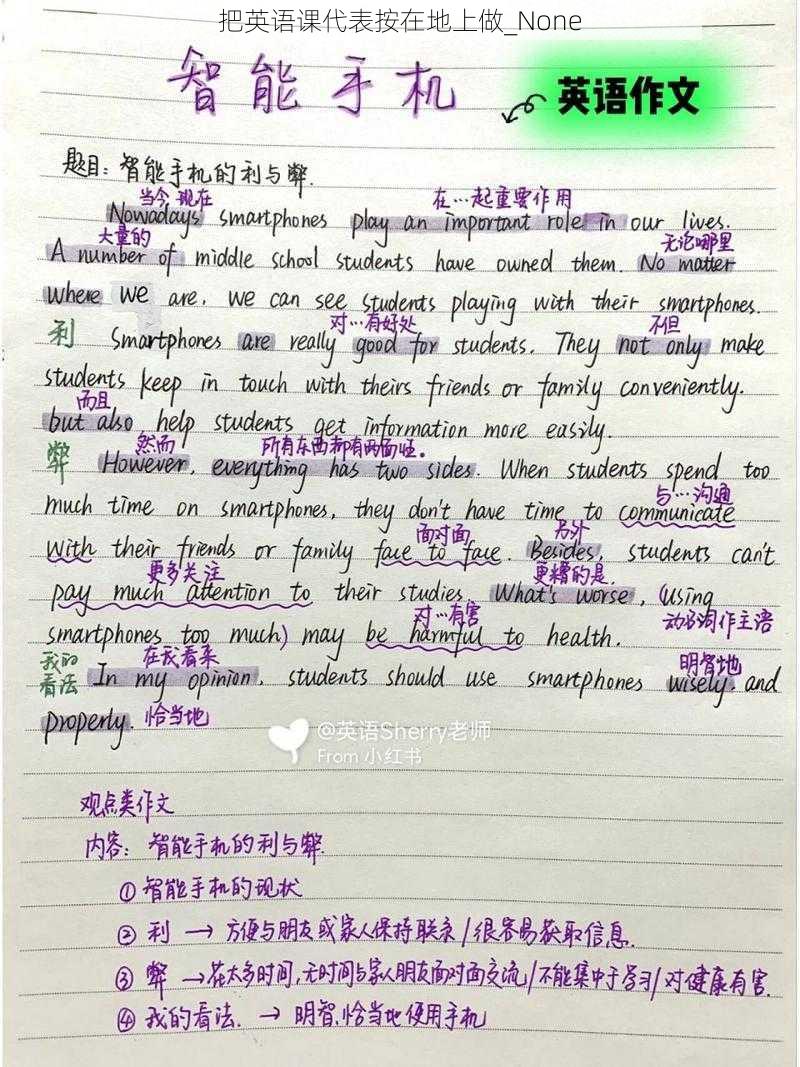 把英语课代表按在地上做_None
智能手机
英语作文
题目：智能手机的利与弊.
当今,现在 在…起重要作用
Nowadays smartphones play an important role in our lives.
大量的 无论哪里
A number of middle school students have owned them. No matter
where we are, we can see students playing with their smartphones.
对…有好处 不但
利 Smartphones are really good for students. They not only make
students keep in touch with theirs friends or family conveniently.
而且
but also help students get information more easily.
然而 所有东西都有两面性。
弊 However, everything has two sides. When students spend too
much time on smartphones, they don't have time to communicate
与…沟通
面对面 另外
with their friends or family face to face. Besides, students can't
更多关注 更糟的是.
pay much attention to their studies. What's worse, (using
对…有害 动名词作主语
smartphones too much) may be harmful to health.
我的看法 在我看来 明智地
In my opinion, students should use smartphones wisely and
properly. 恰当地
@英语Sherry老师
From 小红书
观点类作文
内容：智能手机的利与弊.
①智能手机的现状
②利 → 方便与朋友或家人保持联系/很容易获取信息.
③弊 →花太多时间,无时间与家人朋友面对面交流/不能集中于学习/对健康有害.
④我的看法. → 明智,恰当地使用手机